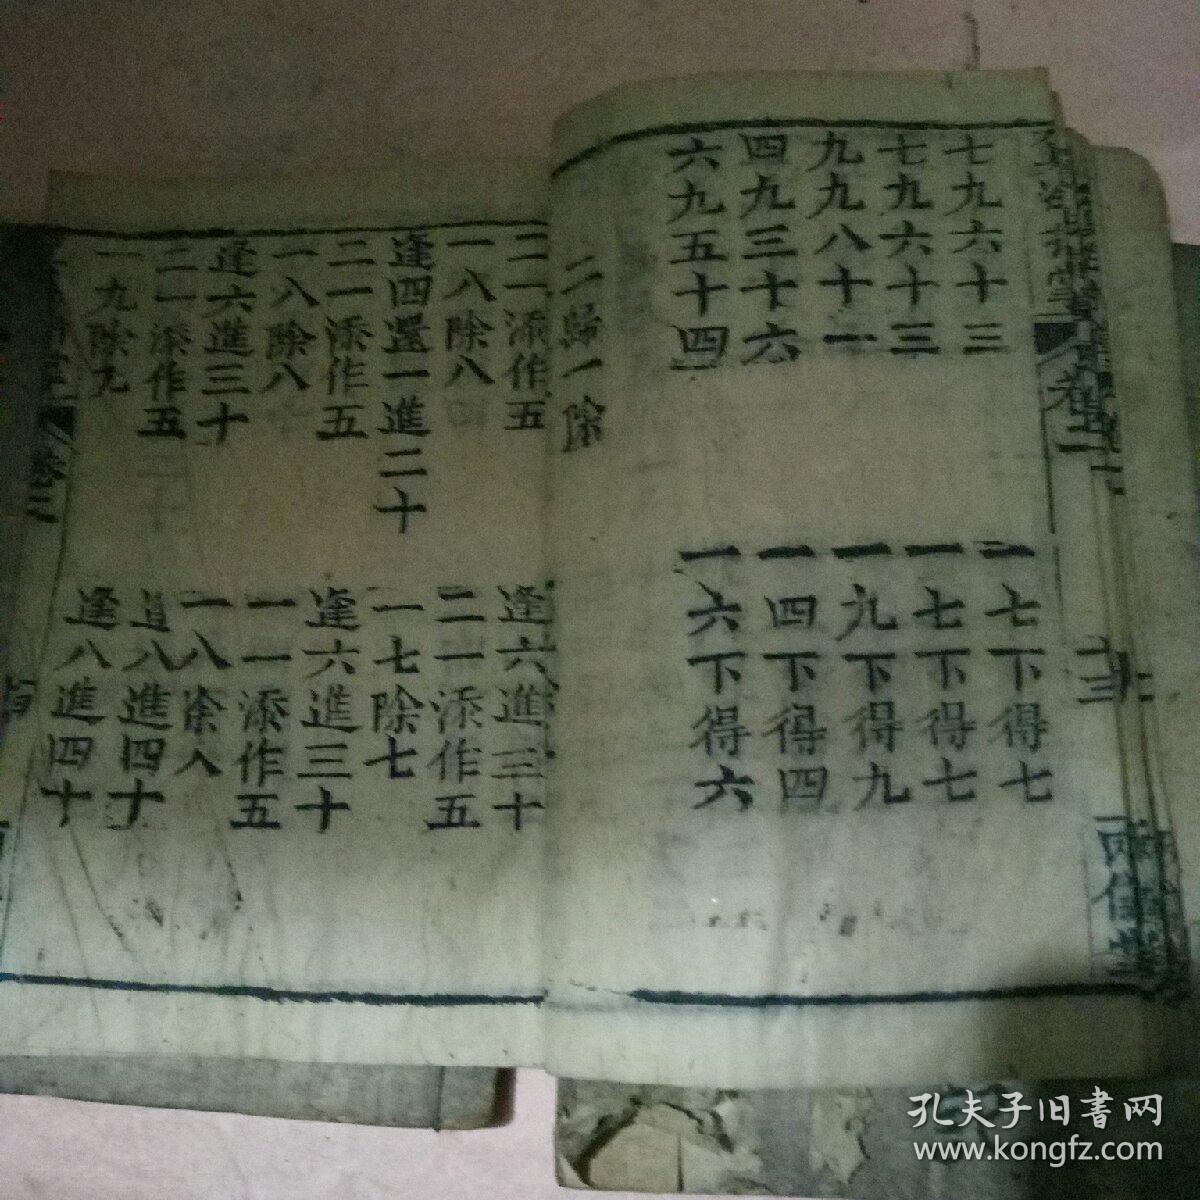 七九六十三
七九六十三
九九八十一
四九三十六
六九五十四
一七下得七
一七下得七
一九下得九
一四下得四
一六下得六
二歸一除
二一添作五
一八除八
逢四還一進二十
二一添作五
一八除八
逢六進三十
二一添作五
一九除九
逢六進三十
二一添作五
一七除七
逢六進三十
一一添作五
一八除八
逢八進四十
逢八進四十
卷二
孔夫子旧書网
www.kongfz.com